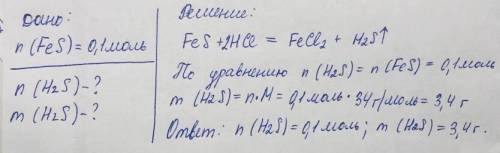 Дано:
n (FeS) = 0,1 моль
n (H2S) - ?
m (H2S) - ?
Решение:
FeS + 2HCl = FeCl2 + H2S↑
По уравнению n (H2S) = n (FeS) = 0,1 моль
m (H2S) = n · M = 0,1 моль · 34 г/моль = 3,4 г
Ответ: n (H2S) = 0,1 моль; m (H2S) = 3,4 г.